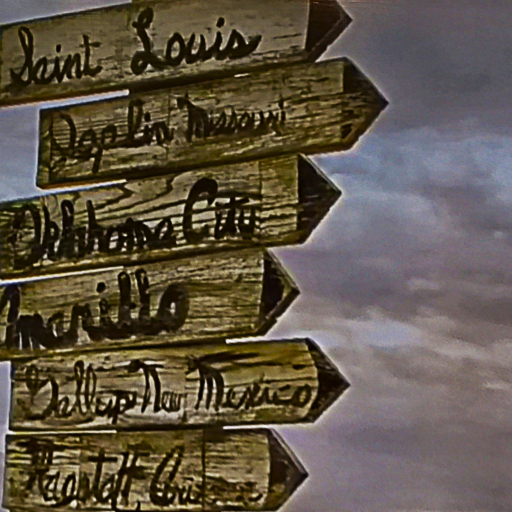 Saint Louis
Joplin Missouri
Oklahoma City
Amarillo
Gallup New Mexico
Flagstaff